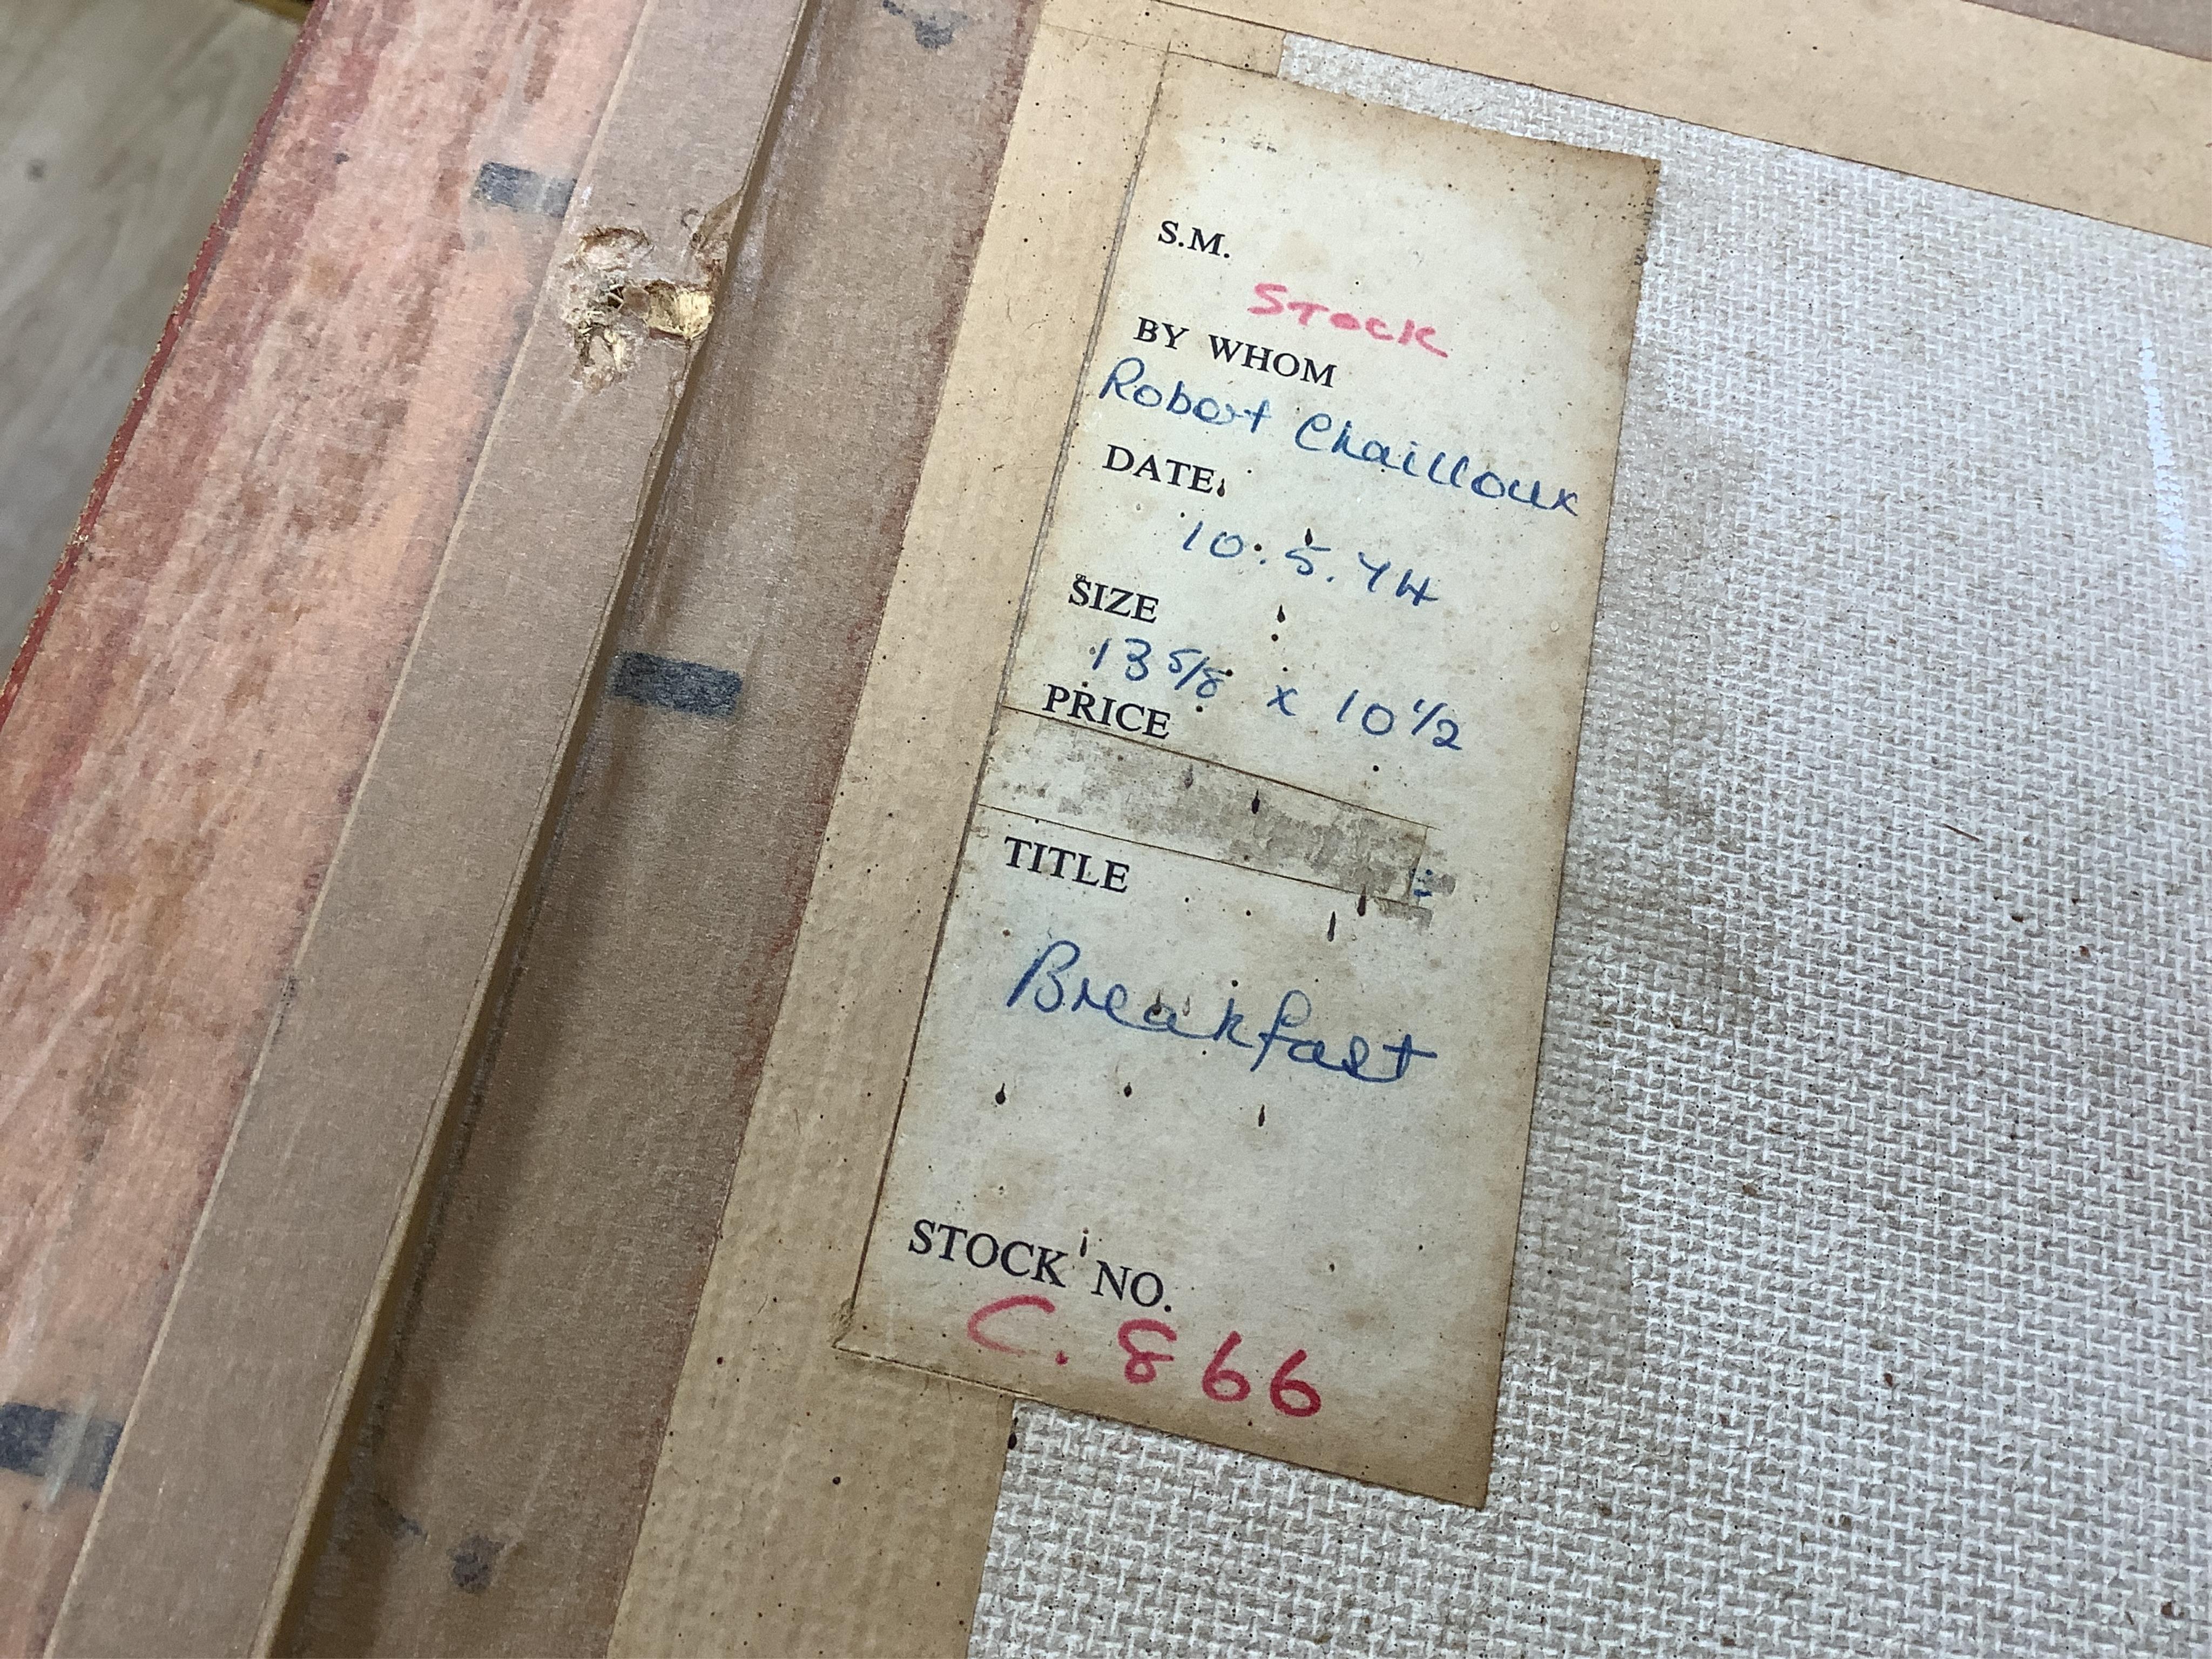 S.M.
STOCK
BY WHOM
Robert Chailloux
DATE.
10.5.74
SIZE
13 5/8 x 10 1/2
PRICE
TITLE
Breakfast
STOCK NO.
C. 866